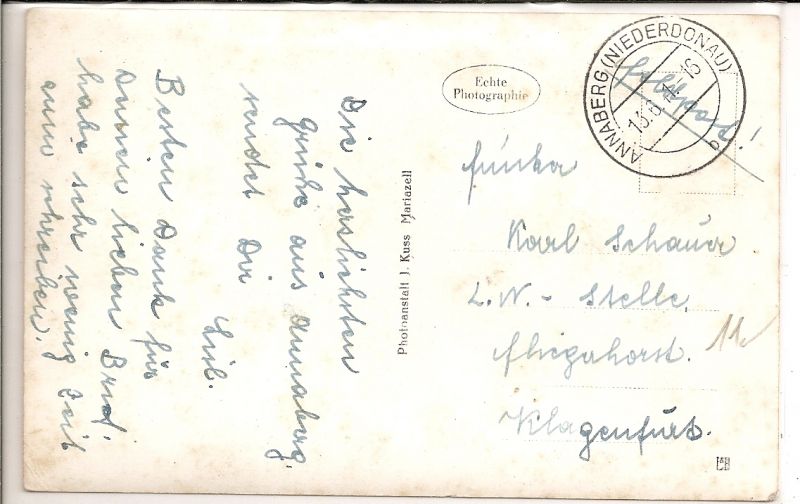 Die herzlichsten
Grüße aus Annaberg.
sendet Dir
Besten Dank für
Deinen lieben Brief.
habe sehr wenig Zeit
zum schreiben.
Echte
Photographie
Photoanstalt J. Kuss Mariazell
ANNABERG (NIEDERDONAU)
15
b
Feldpost!
Funker
Karl Schauer
L.N.- Stelle.
Fliegerhorst.
Klagenfurt.
11